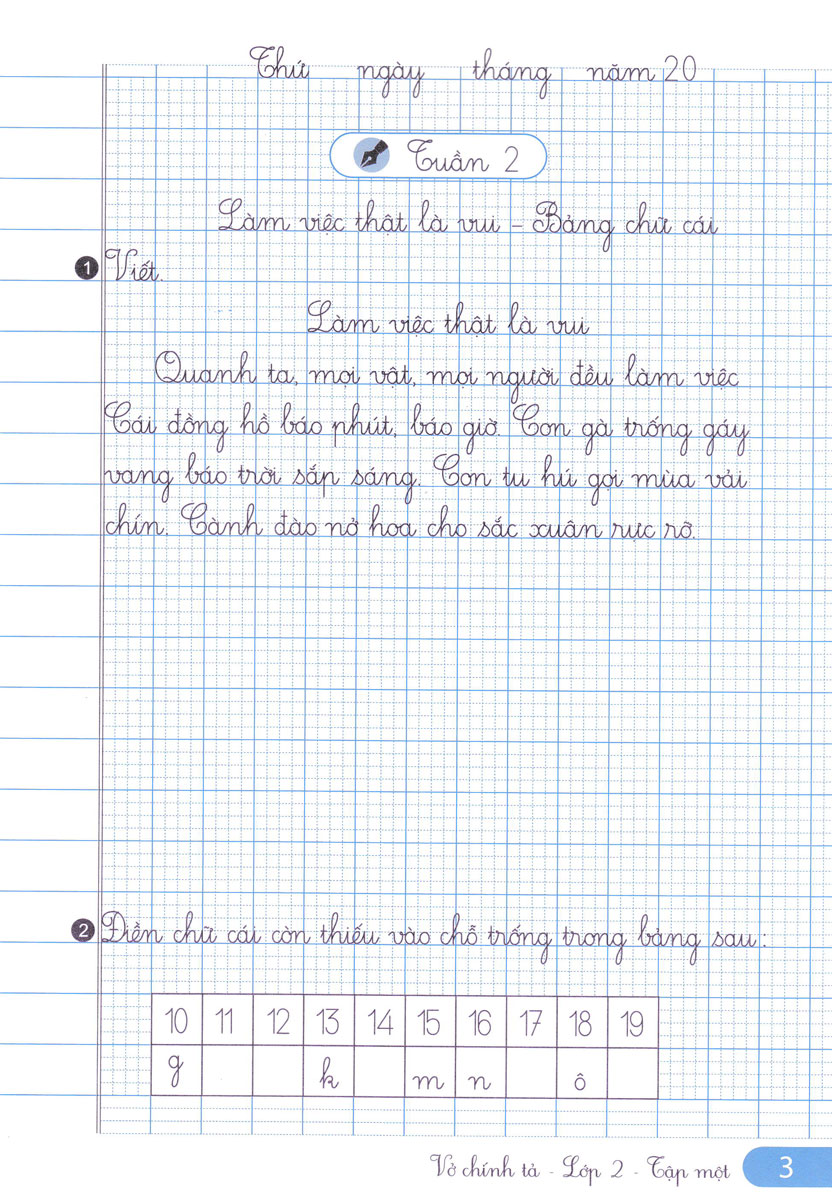 Thứ ngày tháng năm 20
Tuần 2
Làm việc thật là vui - Bảng chữ cái
1 Viết.
Làm việc thật là vui
Quanh ta, mọi vật, mọi người đều làm việc
Cái đồng hồ báo phút, báo giờ. Con gà trống gáy
vang báo trời sắp sáng. Con tu hú gọi mùa vải
chín. Cành đào nở hoa cho sắc xuân rực rỡ.
2 Điền chữ cái còn thiếu vào chỗ trống trong bảng sau:
10 11 12 13 14 15 16 17 18 19
g k m n ô
Vở chính tả - Lớp 2 - Tập một 3